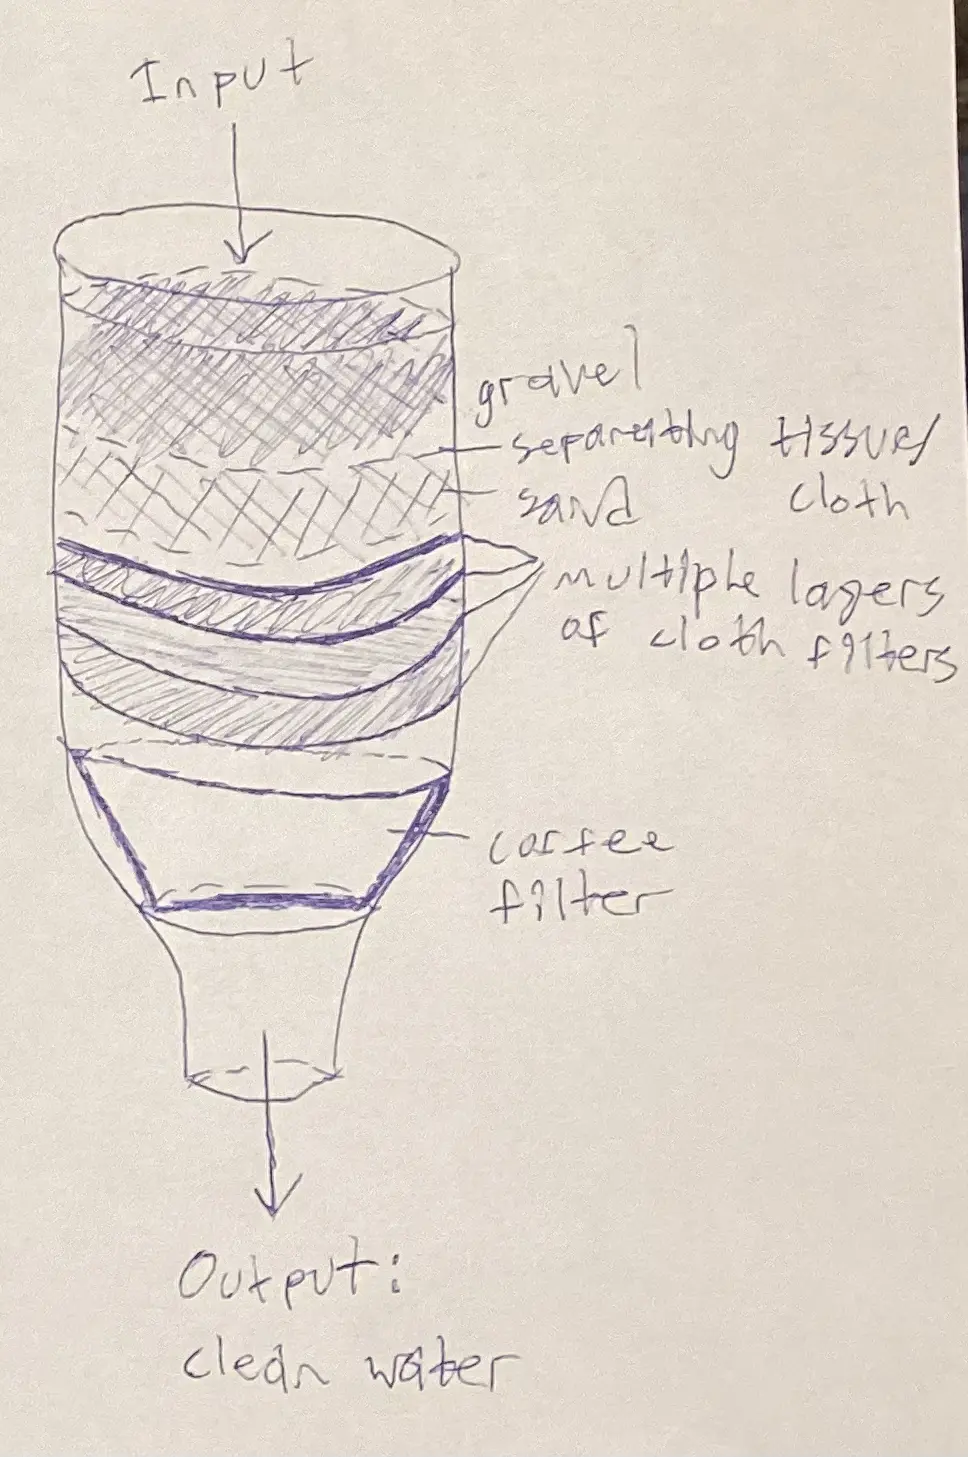 Input
gravel
separating tissue/
cloth
sand
multiple layers
of cloth filters
coffee
filter
Output:
clean water